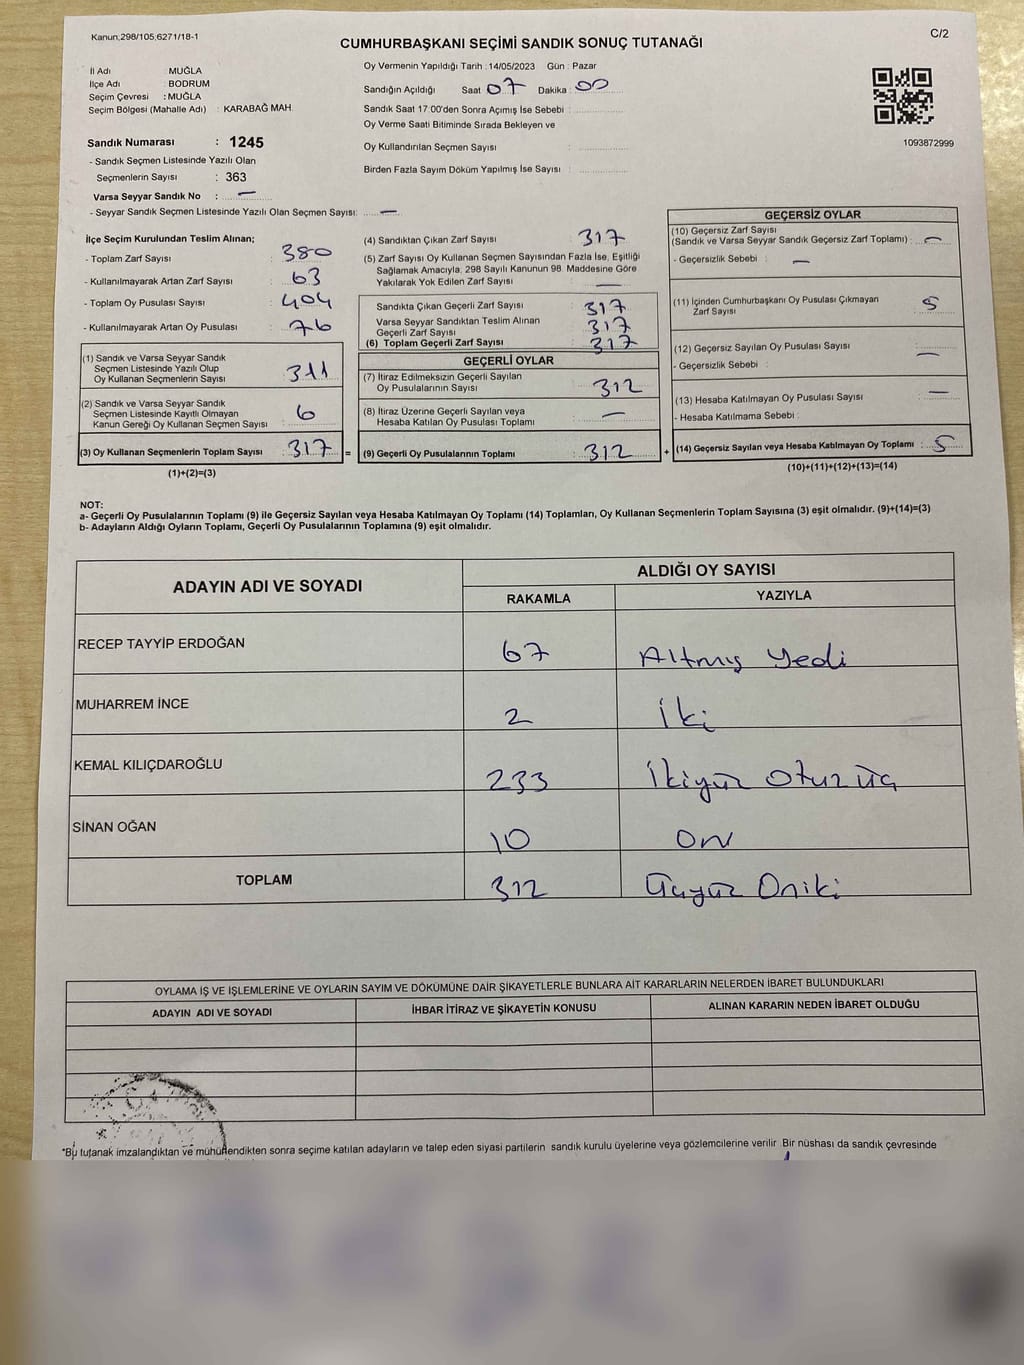 Kanun,298/105,6271/18-1
C/2
CUMHURBAŞKANI SEÇİMİ SANDIK SONUÇ TUTANAĞI
İl Adı : MUĞLA
İlçe Adı : BODRUM
Seçim Çevresi : MUĞLA
Seçim Bölgesi (Mahalle Adı) : KARABAĞ MAH.
Sandık Numarası : 1245
- Sandık Seçmen Listesinde Yazılı Olan
Seçmenlerin Sayısı : 363
Varsa Seyyar Sandık No : —
- Seyyar Sandık Seçmen Listesinde Yazılı Olan Seçmen Sayısı: —
Oy Vermenin Yapıldığı Tarih :14/05/2023 Gün : Pazar
Sandığın Açıldığı Saat 07 Dakika : 00
Sandık Saat 17:00'den Sonra Açımış İse Sebebi :
Oy Verme Saati Bitiminde Sırada Bekleyen ve
Oy Kullandırılan Seçmen Sayısı :
Birden Fazla Sayım Döküm Yapılmış İse Sayısı :
1093872999
İlçe Seçim Kurulundan Teslim Alınan;
- Toplam Zarf Sayısı : 380
- Kullanılmayarak Artan Zarf Sayısı : 63
- Toplam Oy Pusulası Sayısı : 404
- Kullanılmayarak Artan Oy Pusulası : 76
(1) Sandık ve Varsa Seyyar Sandık
Seçmen Listesinde Yazılı Olup
Oy Kullanan Seçmenlerin Sayısı : 311
(2) Sandık ve Varsa Seyyar Sandık
Seçmen Listesinde Kayıtlı Olmayan
Kanun Gereği Oy Kullanan Seçmen Sayısı : 6
(3) Oy Kullanan Seçmenlerin Toplam Sayısı : 317 =
(1)+(2)=(3)
(4) Sandıktan Çıkan Zarf Sayısı : 317
(5) Zarf Sayısı Oy Kullanan Seçmen Sayısından Fazla İse, Eşitliği
Sağlamak Amacıyla, 298 Sayılı Kanunun 98. Maddesine Göre
Yakılarak Yok Edilen Zarf Sayısı : —
Sandıkta Çıkan Geçerli Zarf Sayısı : 317
Varsa Seyyar Sandıktan Teslim Alınan
Geçerli Zarf Sayısı : 317
(6) Toplam Geçerli Zarf Sayısı : 317
GEÇERLİ OYLAR
(7) İtiraz Edilmeksizin Geçerli Sayılan
Oy Pusulalarının Sayısı : 312
(8) İtiraz Üzerine Geçerli Sayılan veya
Hesaba Katılan Oy Pusulası Toplamı : —
(9) Geçerli Oy Pusulalarının Toplamı : 312 +
GEÇERSİZ OYLAR
(10) Geçersiz Zarf Sayısı
(Sandık ve Varsa Seyyar Sandık Geçersiz Zarf Toplamı) : —
- Geçersizlik Sebebi : —
(11) İçinden Cumhurbaşkanı Oy Pusulası Çıkmayan
Zarf Sayısı : 5
(12) Geçersiz Sayılan Oy Pusulası Sayısı : —
- Geçersizlik Sebebi :
(13) Hesaba Katılmayan Oy Pusulası Sayısı : —
- Hesaba Katılmama Sebebi :
(14) Geçersiz Sayılan veya Hesaba Katılmayan Oy Toplamı : 5
(10)+(11)+(12)+(13)=(14)
NOT:
a- Geçerli Oy Pusulalarının Toplamı (9) ile Geçersiz Sayılan veya Hesaba Katılmayan Oy Toplamı (14) Toplamları, Oy Kullanan Seçmenlerin Toplam Sayısına (3) eşit olmalıdır. (9)+(14)=(3)
b- Adayların Aldığı Oyların Toplamı, Geçerli Oy Pusulalarının Toplamına (9) eşit olmalıdır.
ADAYIN ADI VE SOYADI
ALDIĞI OY SAYISI
RAKAMLA YAZIYLA
RECEP TAYYİP ERDOĞAN 67 Altmış Yedi
MUHARREM İNCE 2 İki
KEMAL KILIÇDAROĞLU 233 İkiyüz Otuz üç
SİNAN OĞAN 10 On
TOPLAM 312 Üçyüz Oniki
OYLAMA İŞ VE İŞLEMLERİNE VE OYLARIN SAYIM VE DÖKÜMÜNE DAİR ŞİKAYETLERLE BUNLARA AİT KARARLARIN NELERDEN İBARET BULUNDUKLARI
ADAYIN ADI VE SOYADI İHBAR İTİRAZ VE ŞİKAYETİN KONUSU ALINAN KARARIN NEDEN İBARET OLDUĞU
*Bu tutanak imzalandıktan ve mühürlendikten sonra seçime katılan adayların ve talep eden siyasi partilerin sandık kurulu üyelerine veya gözlemcilerine verilir. Bir nüshası da sandık çevresinde